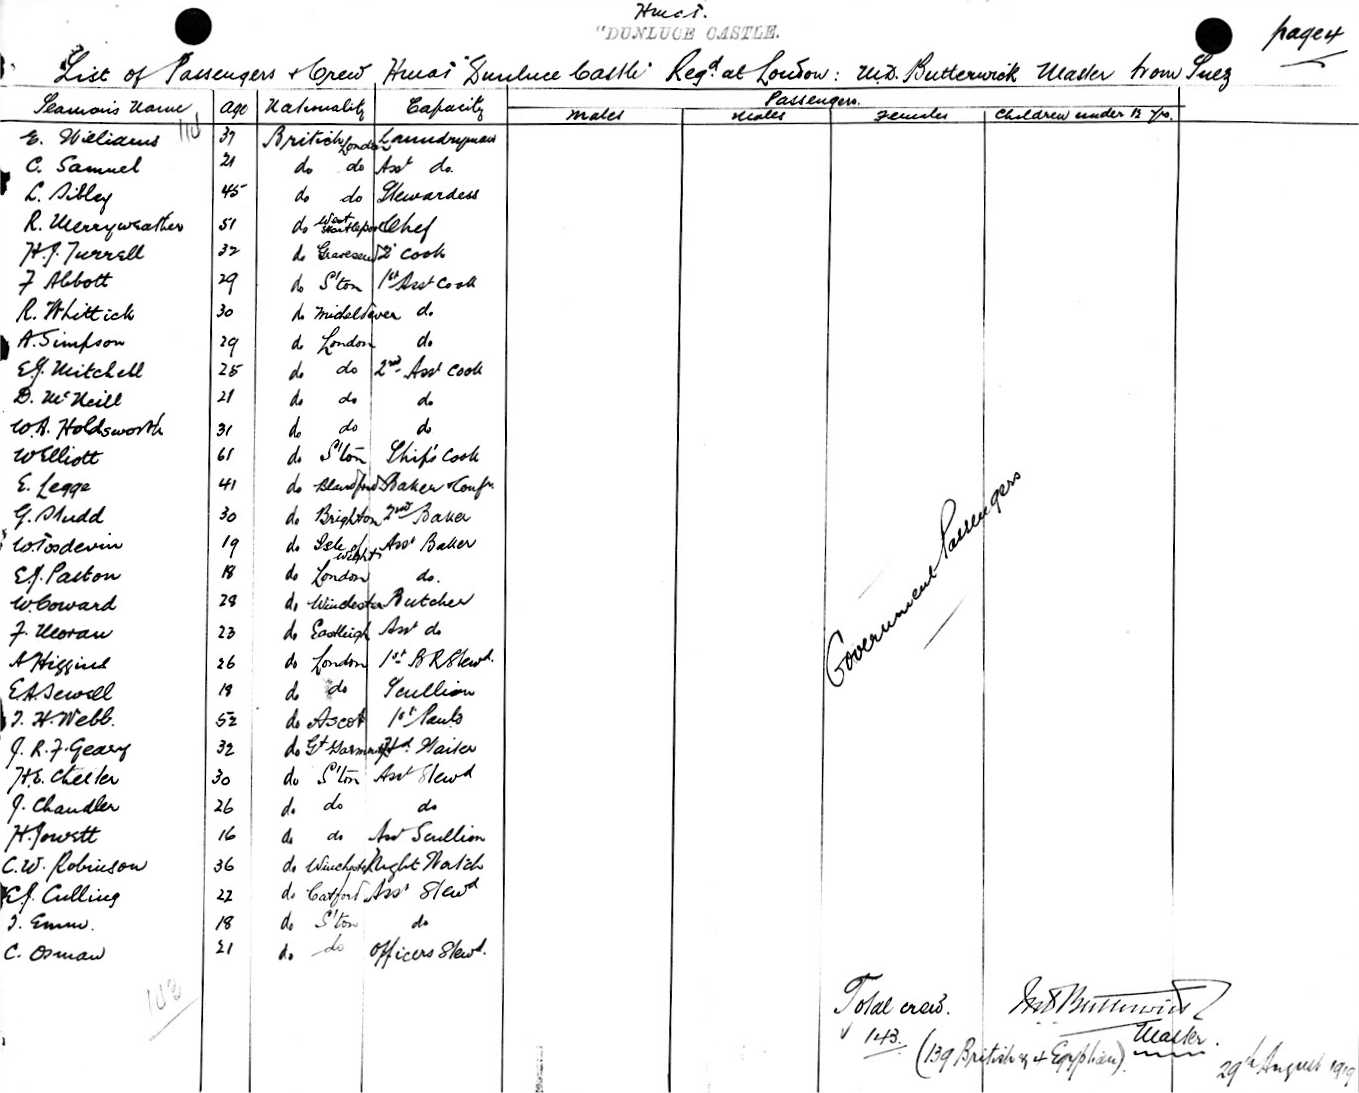 Hmat.
"DUNLUCE CASTLE.
page 4
List of Passengers & Crew Hmat "Dunluce Castle" Regd. at London: M.D. Butterwick Master from Suez
Seamans Name Age Nationality Capacity Passengers.
Males Males Females Children under 12 Yrs.
E. Williams 37 British London Laundryman
C. Samuel 21 do do Asst do.
L. Sibley 45 do do Stewardess
R. Merryweather 51 do West Hartlepool Chef
H.J. Turrell 32 do Gravesend 2d Cook
F Abbott 29 do S'ton 1st Asst Cook
R. Whittick 30 do Micheldever do.
A. Simpson 29 do London do
E.J. Mitchell 25 do do 2nd Asst Cook
D. McNeill 21 do do do
W.A. Holdsworth 31 do do do
W Elliott 61 do S'ton Ship's Cook
E. Legge 41 do Blandford Baker & Confr.
G. Studd 30 do Brighton 2nd Baker
W. Tosdevin 19 do Isle of Wight Asst Baker
E.J. Paxton 18 do London do.
W. Coward 28 do Winchester Butcher
F. Moran 23 do Eastleigh Asst do
A Higgins 26 do London 1st B R Stewd.
E.A. Sewell 18 do do Scullion
T. H. Webb. 52 do Ascot 1st Pants
J. R. F. Geary 32 do Gt Yarmouth Hd. Waiter
H.E. Chester 30 do S'ton Asst Stewd
J. Chandler 26 do do do
H. Jowett 16 do do Asst Scullion
C. W. Robinson 36 do Winchester Night Watch
E.J. Culling 22 do Catford Asst Stewd
T. Emm. 18 do S'ton do
C. Osman 21 do do Officers Stewd.
Government Passengers
Total crew.
143.
(139 British & 4 Egyptian).
M.D. Butterwick
Master.
29th August 1919